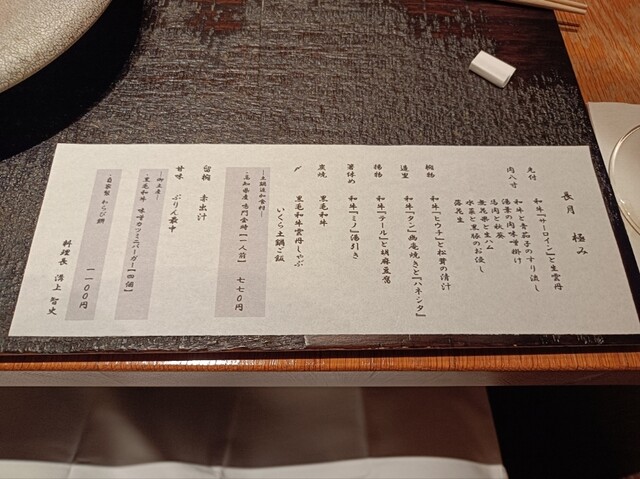 長月　極み
先付　和牛『サーロイン』と生雲丹
肉八寸　和牛と青茄子のすり流し
湯葉の肉味噌掛け
馬肉と秋葵
無花果と生ハム
水菜と黒豚のお浸し
落花生
椀物　和牛『ヒウチ』と松茸の清汁
造里　和牛『タン』幽庵焼きと『ハネシタ』
揚物　和牛『テール』と胡麻豆腐
箸休め　和牛『ミノ』湯引き
炭焼　黒毛和牛
〆　黒毛和牛雲丹しゃぶ
いくら土鍋ご飯
―土鍋追加食材―
・高知県産 鳴門金時【一人前】　七七〇円
留椀　赤出汁
甘味　ぷりん最中
―御土産―
・黒毛和牛 味噌カツミニバーガー【四個】
・自家製 わらび餅　一一〇〇円
料理長　溝上 智史